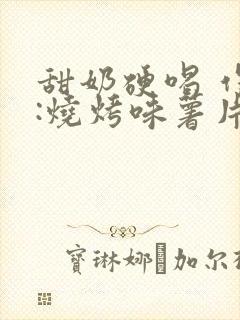 甜奶硬唱
:燒烤味薯片
寶琳娜 加尔